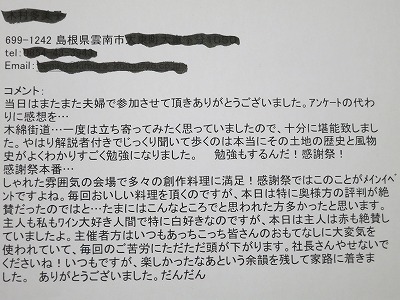 699-1242 島根県雲南市
tel:
Email:
コメント:
当日はまたまた夫婦で参加させて頂きありがとうございました。ｱﾝｹｰﾄの代わ
りに感想を…
木綿街道…一度は立ち寄ってみたく思っていましたので、十分に堪能致しまし
た。やはり解説者付きでじっくり聞いて歩くのは本当にその土地の歴史と風物
史がよくわかりすごく勉強になりました。　勉強もするんだ！感謝祭！
感謝祭本番…
しゃれた雰囲気の会場で多々の創作料理に満足！感謝祭ではこのことがﾒｲﾝｲﾍﾞ
ﾝﾄですよね。毎回おいしい料理を頂くのですが、本日は特に奥様方の評判が絶
賛だったのではと…たまにはこんなところでと思われた方多かったと思います。
主人も私もワイン大好き人間で特に白好きなのですが、本日は主人は赤も絶賛し
ていましたよ。主催者方はいつもあっちこっち皆さんのおもてなしに大変気を
使われていて、毎回のご苦労にただただ頭が下がります。社長さんやせないで
くださいね！いつもですが、楽しかったなあという余韻を残して家路に着きま
した。　ありがとうございました。だんだん